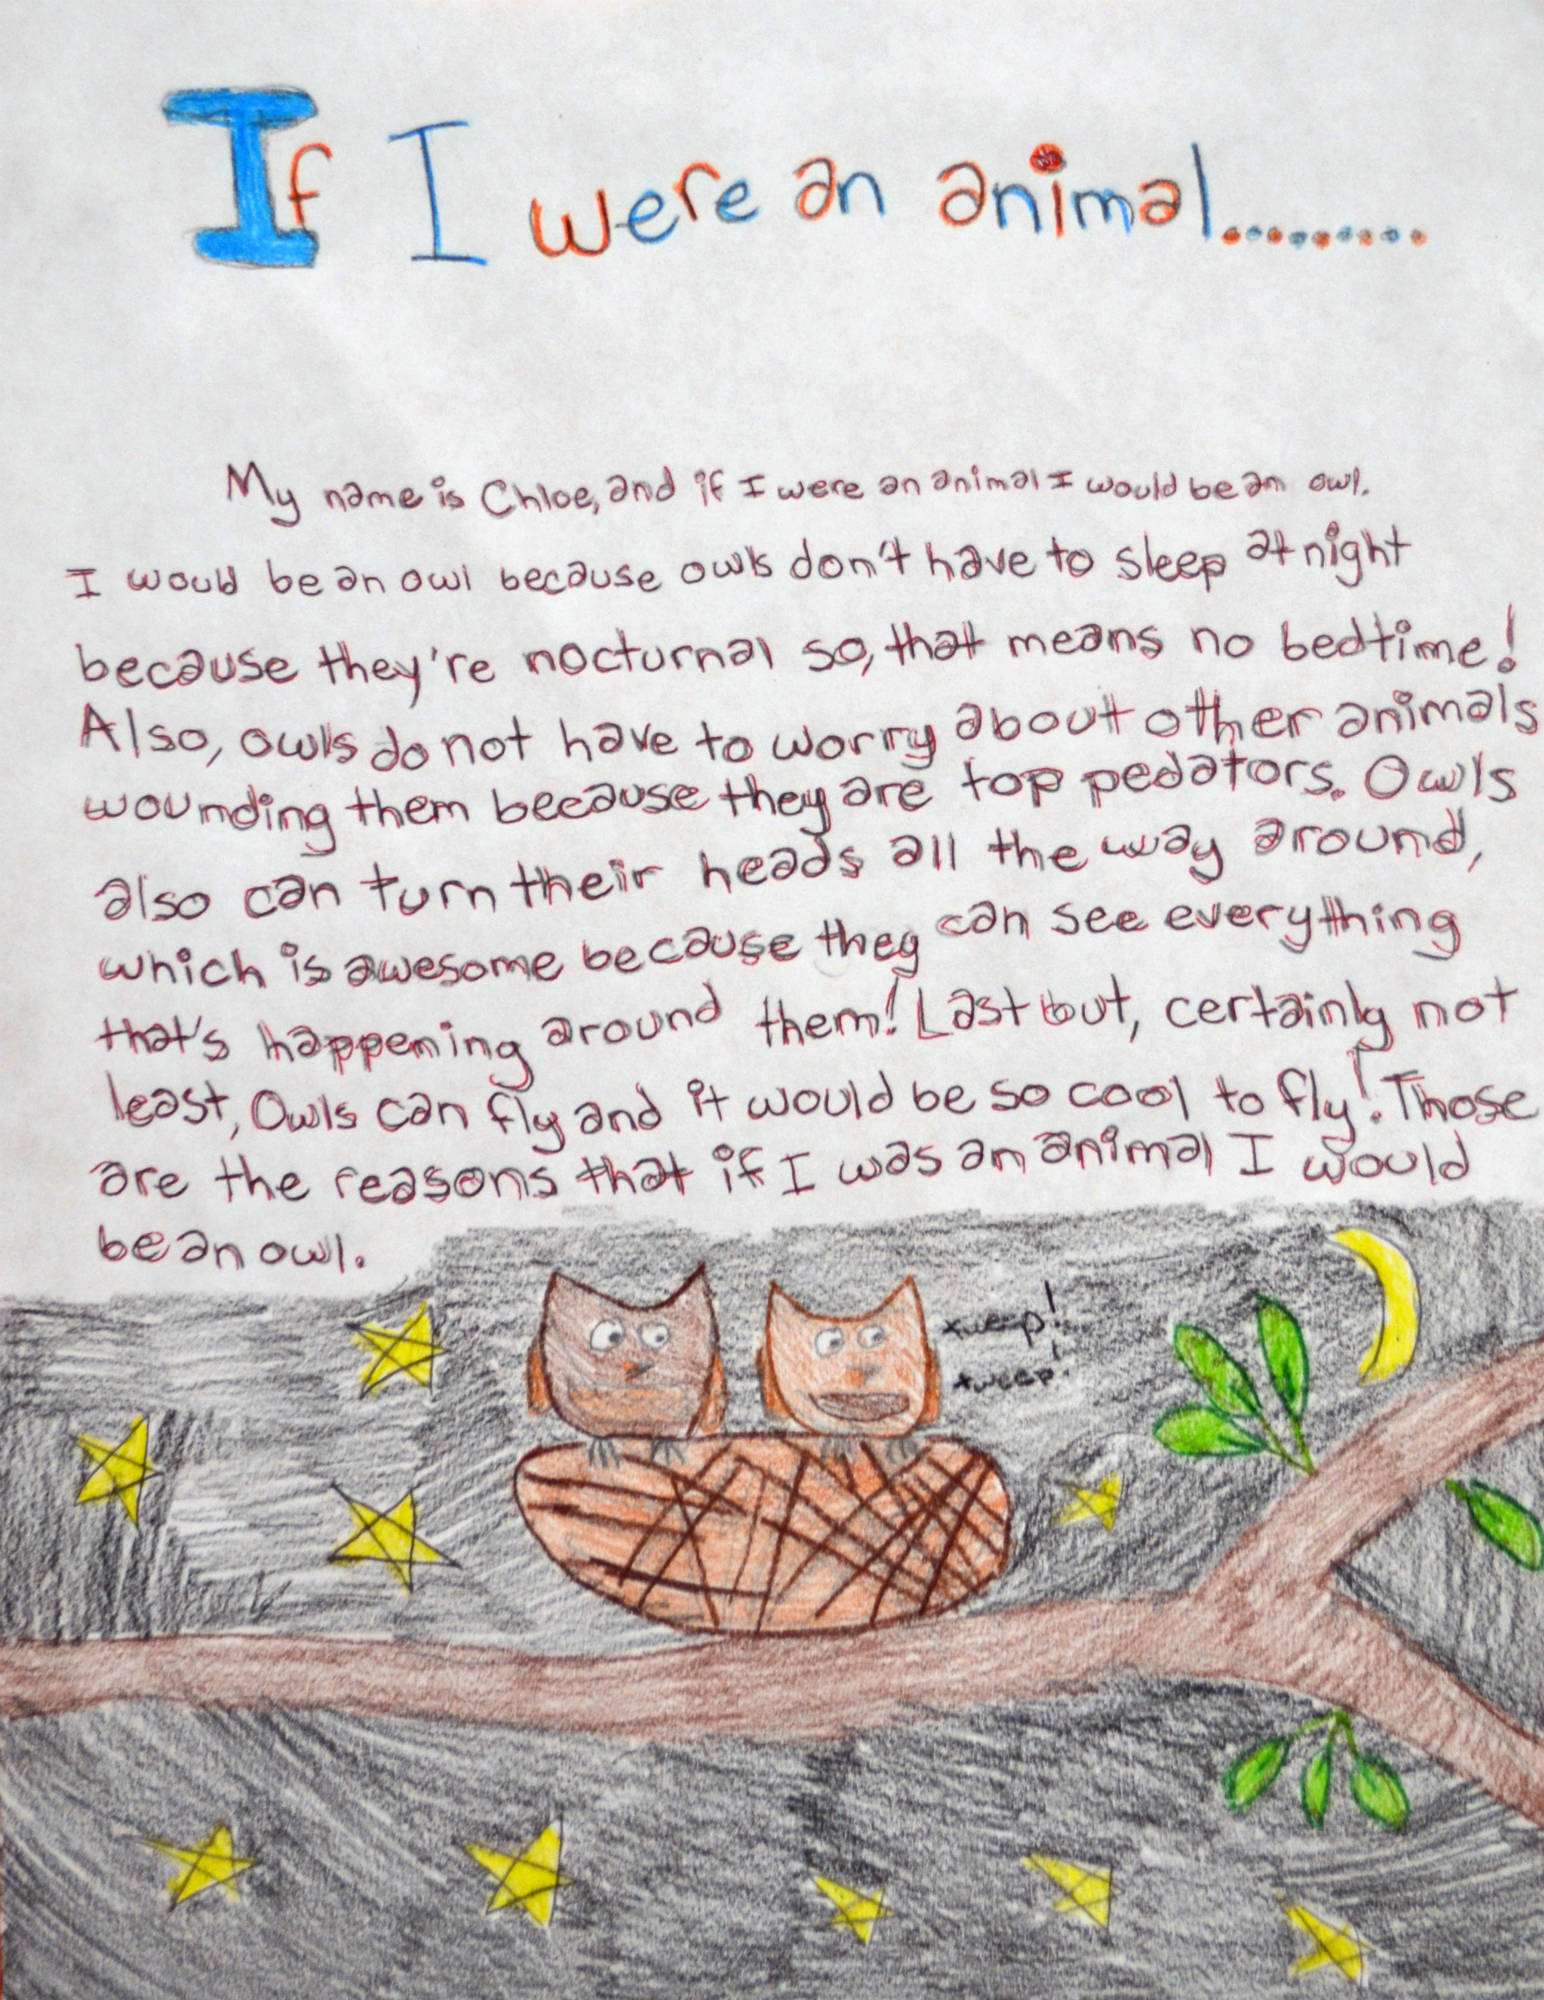 If I were an animal.........
My name is Chloe, and if I were an animal I would be an owl.
I would be an owl because owls don't have to sleep at night
because they're nocturnal so, that means no bedtime!
Also, owls do not have to worry about other animals
wounding them because they are top pedators. Owls
also can turn their heads all the way around,
which is awesome because they can see everything
that's happening around them! Last but, certainly not
least, Owls can fly and it would be so cool to fly! Those
are the reasons that if I was an animal I would
be an owl.
tweep!
tweep!